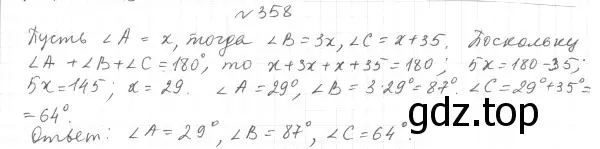 №358
Пусть ∠A = x, тогда ∠B = 3x, ∠C = x+35. Поскольку
∠A + ∠B + ∠C = 180°, то x + 3x + x + 35 = 180; 5x = 180 - 35;
5x = 145; x = 29. ∠A = 29°, ∠B = 3·29° = 87°. ∠C = 29° + 35° =
= 64°.
Ответ: ∠A = 29°, ∠B = 87°, ∠C = 64°.
gdz.top